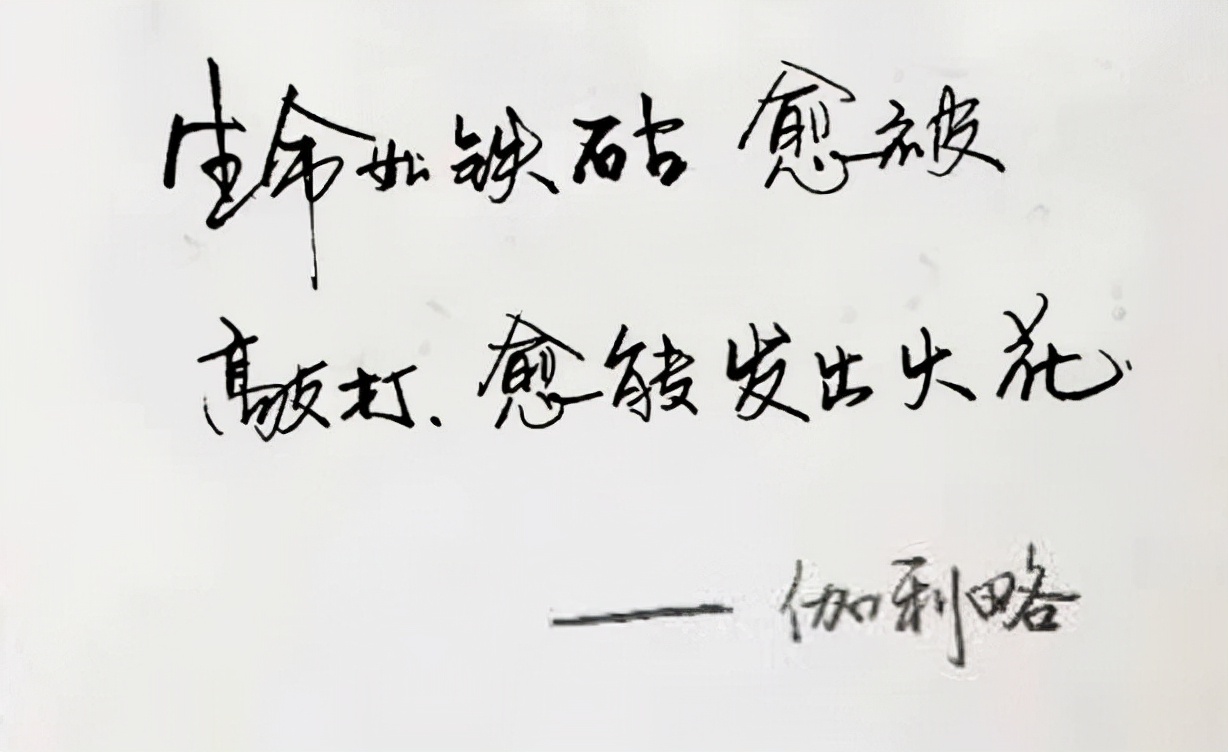 生命如铁砧 愈被
敲打.愈能发出火花
——伽利略